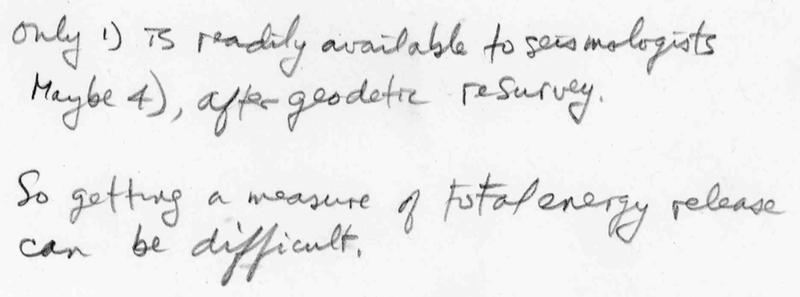 only 1) is readily available to seismologists
Maybe 4), after geodetic resurvey.
So getting a measure of total energy release
can be difficult.